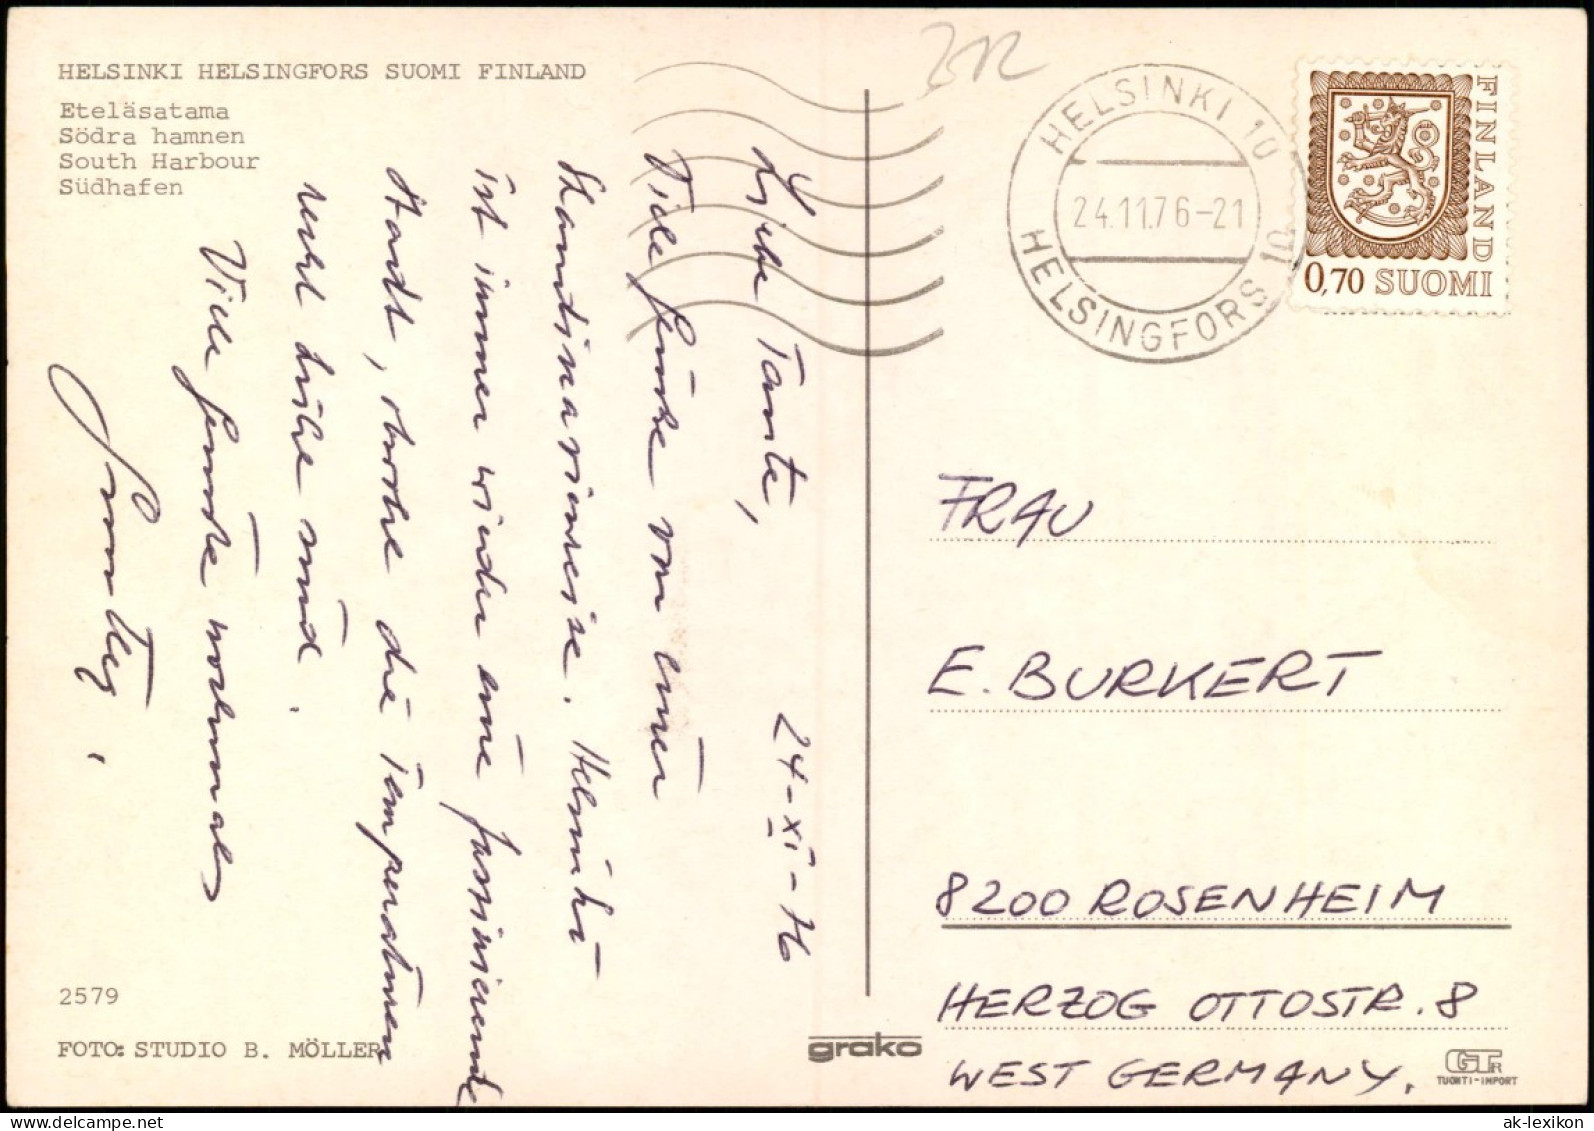 HELSINKI HELSINGFORS SUOMI FINLAND
Eteläsatama
Södra hamnen
South Harbour
Südhafen
HELSINKI 10
24.11.76-21
HELSINGFORS 10
FINLAND
0,70 SUOMI
24-XI-76
Liebe Tante,
Viele Grüße von einer
Skandinavienreise. Helsinki
ist immer wieder eine faszinierende
Stadt, obwohl die Temperaturen
recht kühl sind.
Viele Grüße nochmals
FRAU
E. BURKERT
8200 ROSENHEIM
HERZOG OTTOSTR. 8
WEST GERMANY.
2579
FOTO: STUDIO B. MÖLLER
grako
GTR
TUONTI-IMPORT
ak-lexikon.com